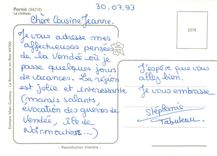 30.07.93
Pornic (44210)
Le château
Chère Cousine Jeanne.
Je vous adresse mes
affectueuses pensées
de la Vendée où je
passe quelques
jours de vacances. La région
est jolie et intéressante
(marais salants,
évocation des guerres de
Vendée, île de
Noirmoutier...)
J'espère que vous
allez bien.
Je vous embrasse
Stéphanie
Tabuteau
Reproduction interdite